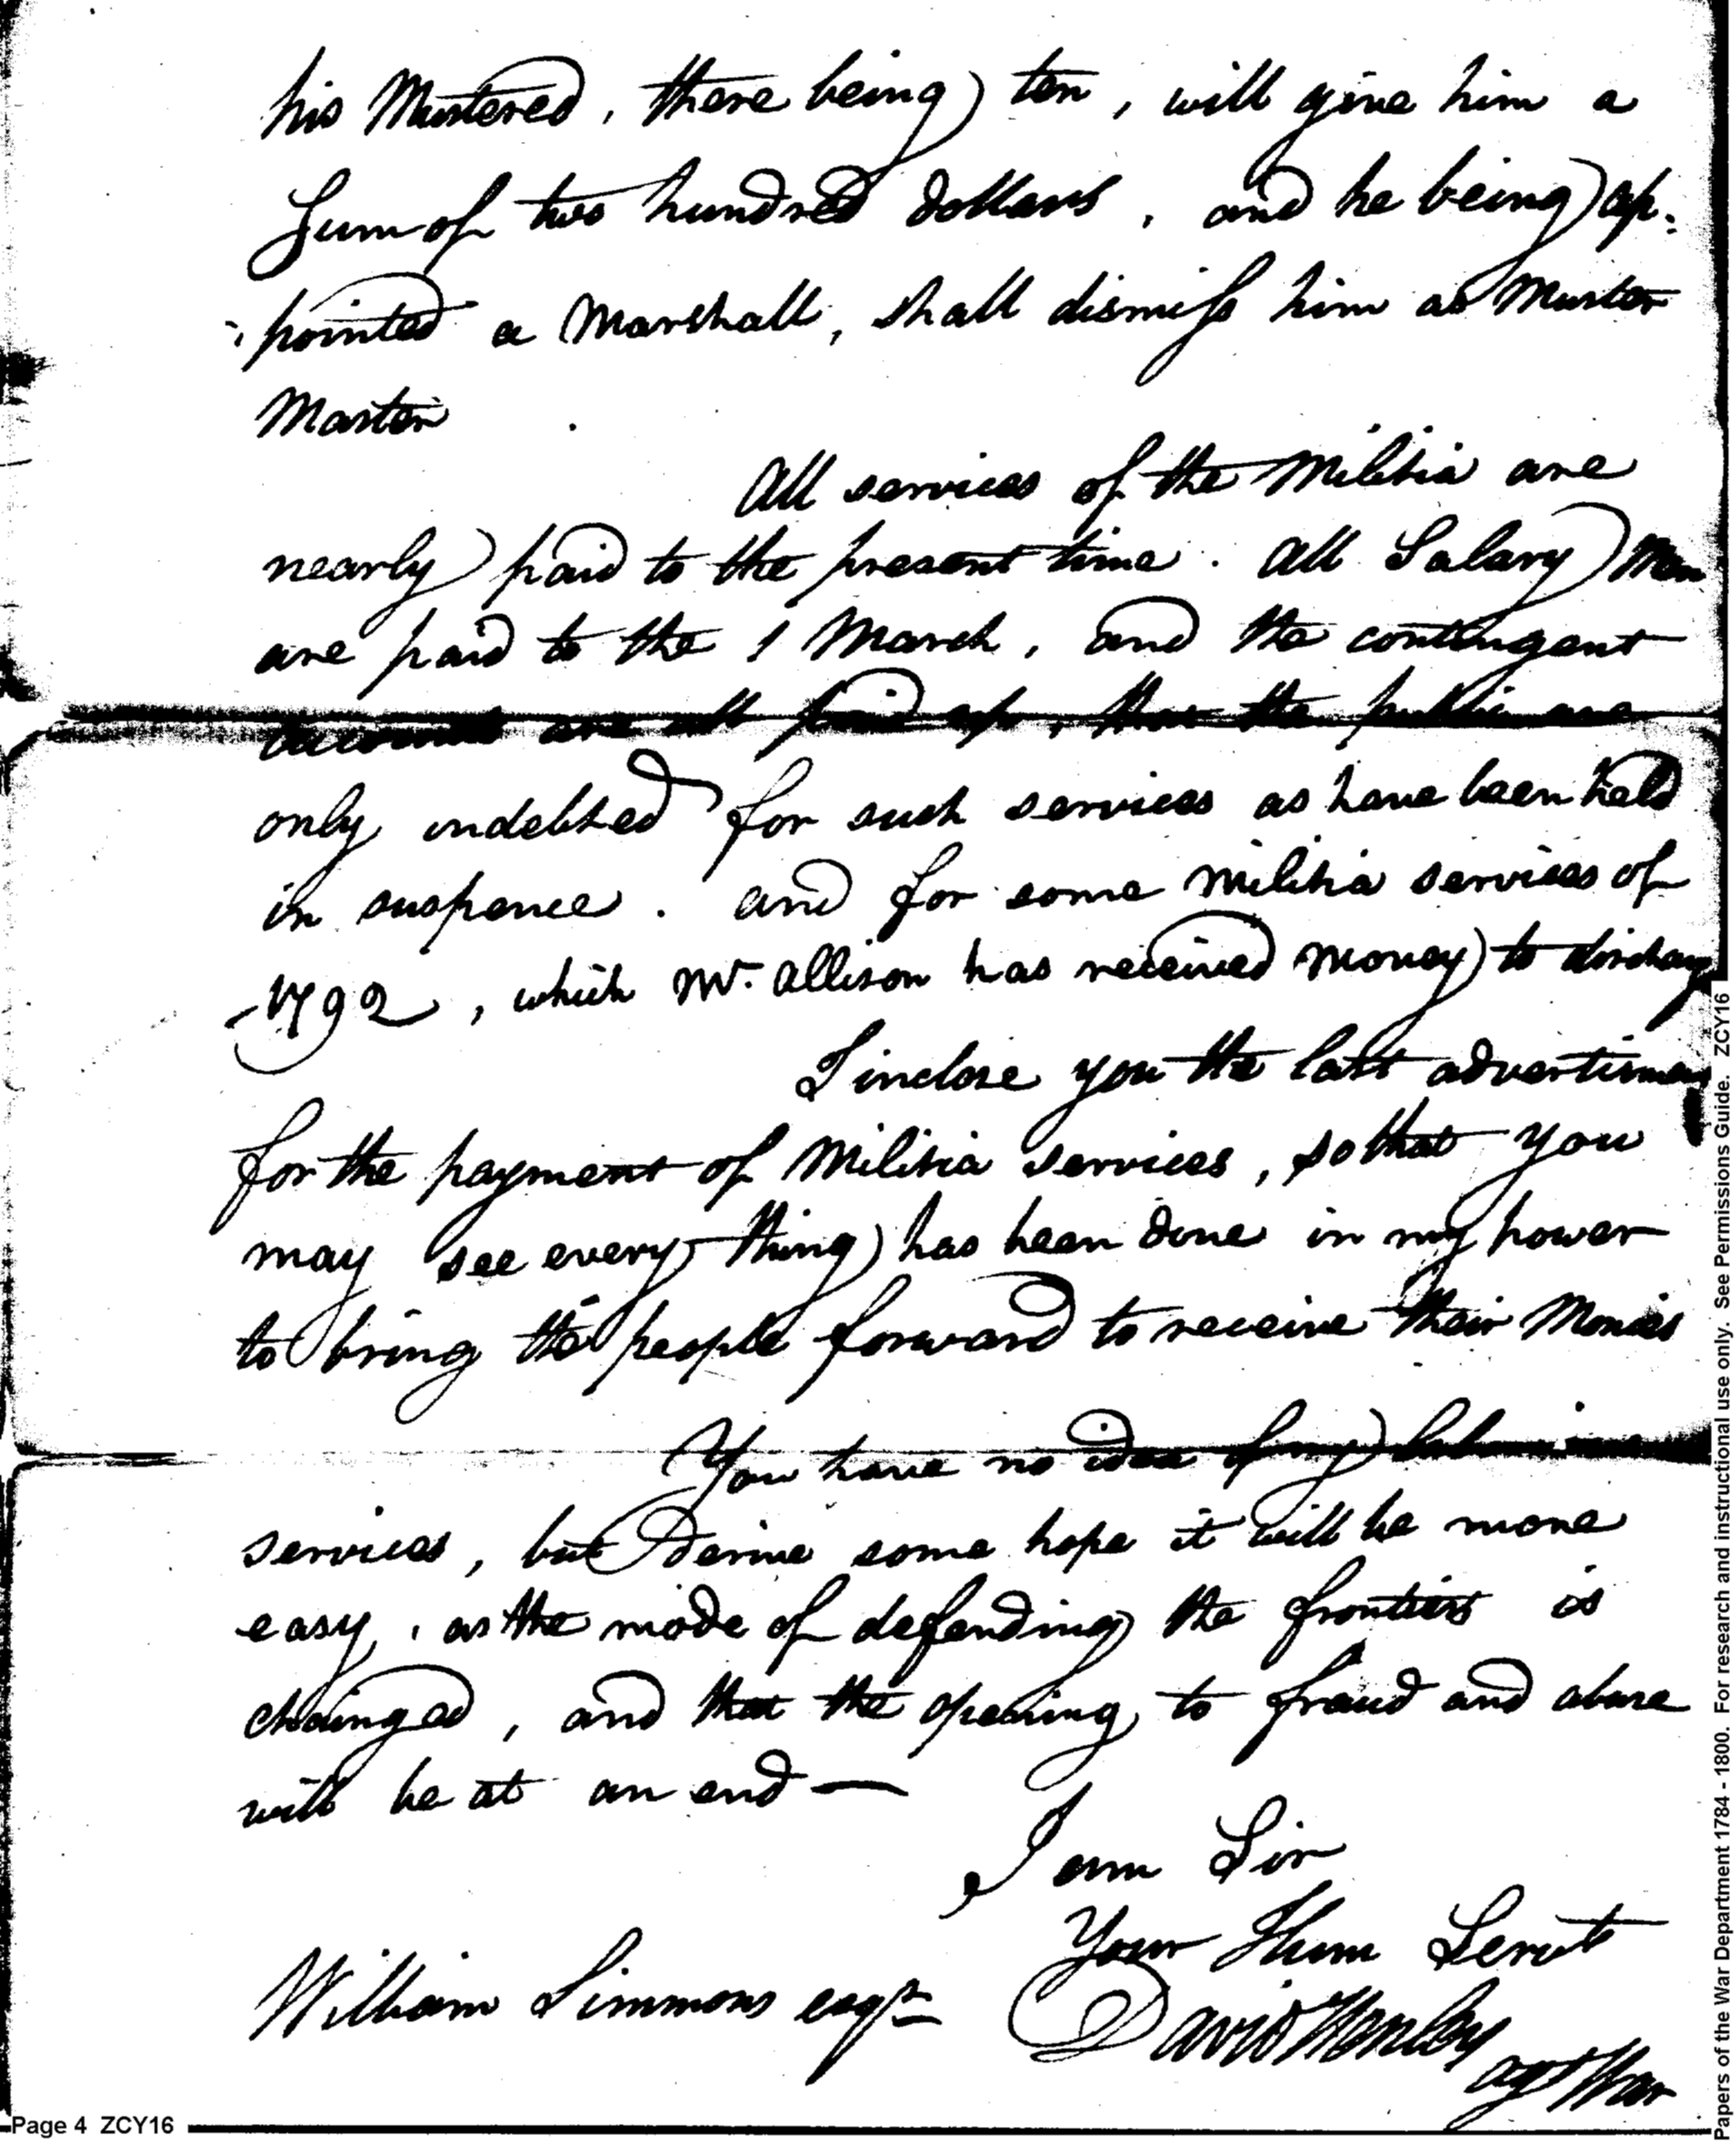 his Mustered, there being ten, will give him a
Sum of two hundred dollars, and he being ap-
-pointed a Marshall, shall dismiss him as Muster
Master
All services of the Militia are
nearly paid to the present time. All Salary Men
are paid to the 1 March, and the contengent
accounts are all paid up, thus the public are
only indebted for such services as have been held
in suspence. and for some Militia services of
-1792, which Mr. Allison has received money to discharge
I inclose you the last advertisment
for the payment of Militia services, so that you
may see every thing has been done in my power
to bring the people forward to receive their Monies
You have no idea of my
services, but I derive some hope it will be more
easy, as the mode of defending the frontiers is
chainged, and that the opening to fraud and abuse
will be at an end —
I am Sir
Your Hum Servt
William Simmons esqr
David Henley
agt War
Page 4 ZCY16
Papers of the War Department 1784 - 1800. For research and instructional use only. See Permissions Guide. ZCY16